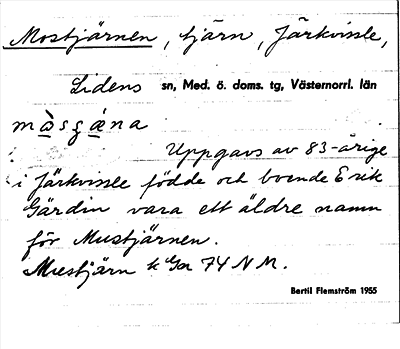 Mostjärnen, tjärn, Järkvissle,
Lidens sn, Med. ö. doms. tg, Västernorrl. län
Uppgavs av 83-årige
i Järkvissle födde och boende Erik
Gärdin vara ett äldre namn
för Mustjärnen.
Mustjärn k Gm 74 N M.
Bertil Flemström 1955